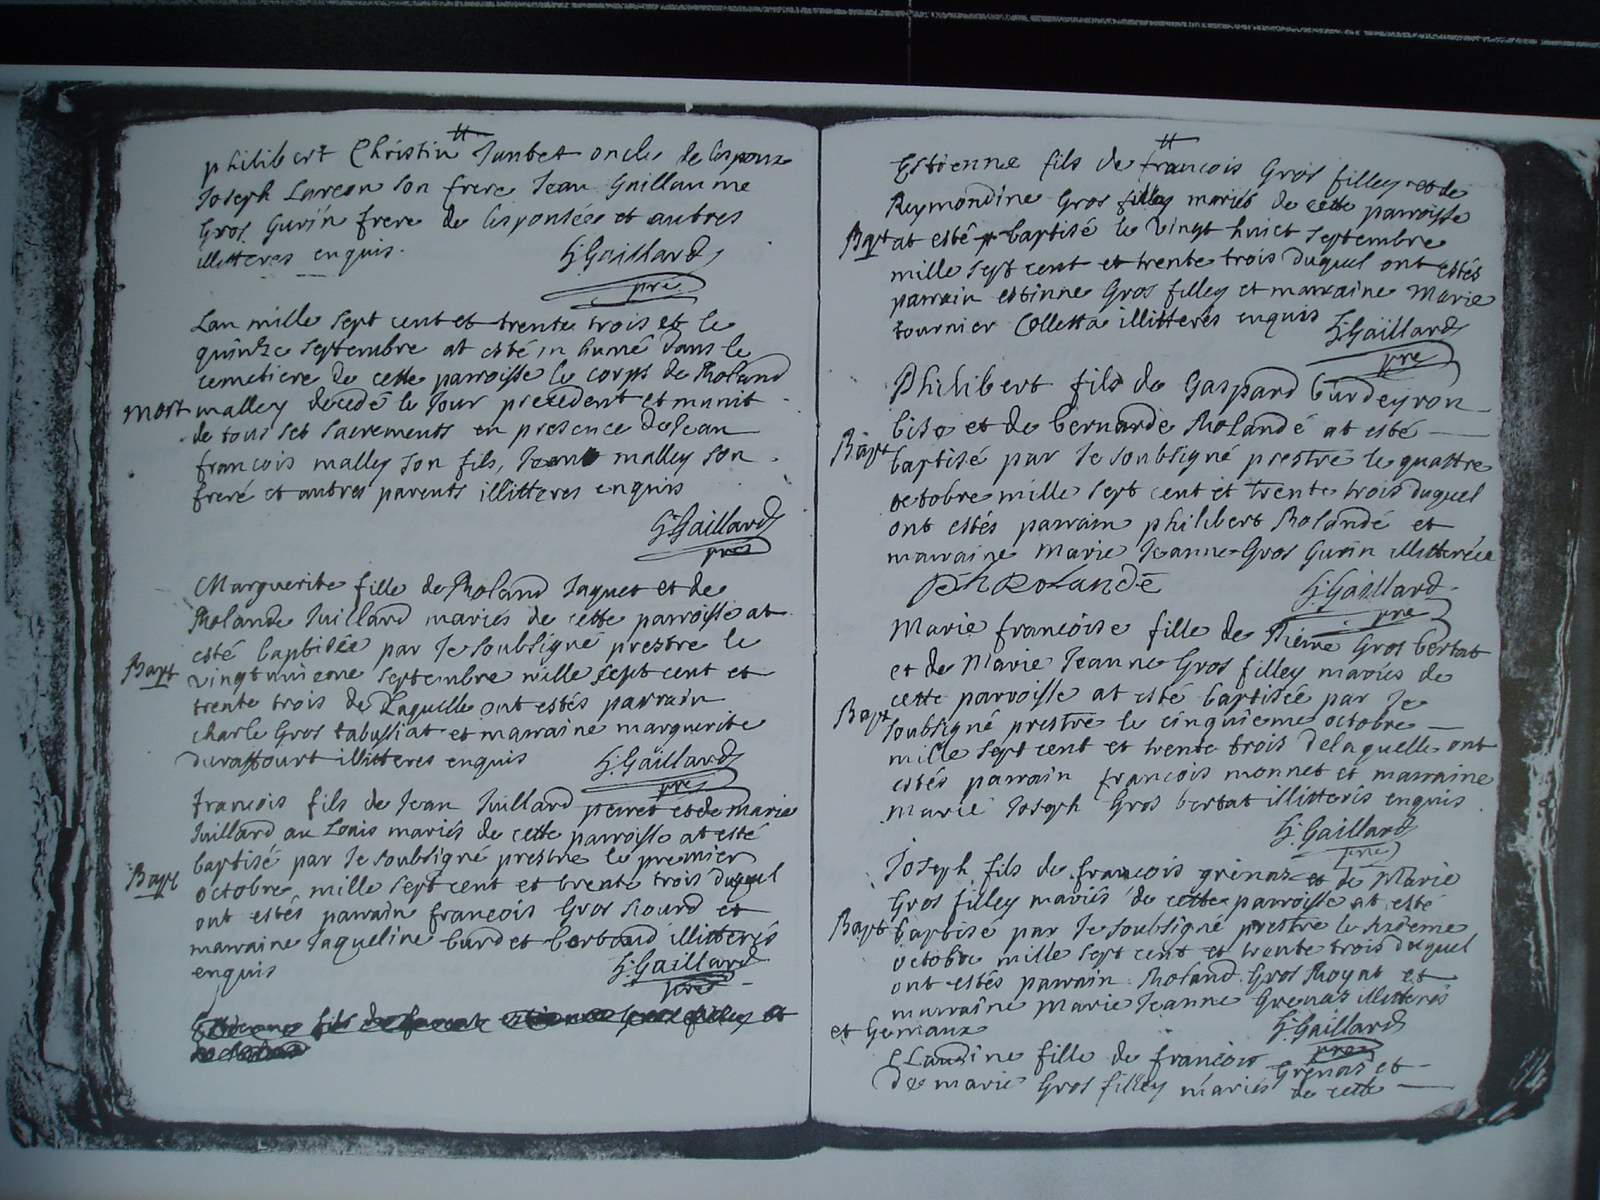 philibert Christin Junbet oncle de lespoux
Joseph Larcon son frere Jean Guillaume
Gros Gurin frere de lespousée et autres
illitteres enquis.
G: Gaillard
pre
Lan mille sept cent et trente trois et le
quinze septembre at esté in humé dans le
cemetiere de cette parroisse le corps de Roland
mort malley decedé le Jour precedent et munit
de tous ses sacrements en presence de Jean
francois malley son fils, Jean malley son
freré et autres parents illitteres enquis
G: Gaillard
pre
Marguerite fille de Roland Jaquet et de
Rolande Juillard mariés de cette parroisse at
esté baptisée par Je soubsigné prestre le
Bapt vingtunieme septembre mille sept cent et
trente trois de Laquelle ont estés parrain
charle Gros tabussiat et marraine marguerite
duraffourt illitteres enquis
G: Gaillard
pre
francois fils de Jean Juillard perret et de Marie
Juillard au Louis mariés de cette parroisse at esté
baptisé par Je soubsigné prestre le premier
Bapt octobre mille sept cent et trente trois duquel
ont estés parrain francois Gros et
marraine Jaqueline burdet illitterés
enquis
G: Gaillard
pre
fils de
Estienne fils de francois Gros filley et de
Reymondine Gros filley mariés de cette parroisse
Bapt at esté baptisé le vingt huict septembre
mille sept cent et trente trois duquel ont estés
parrain estinne Gros filley et marraine Marie
tournier Colletta illitteres enquis
G: Gaillard
pre
Philibert fils de Gaspard burdeyron
bise et de bernarde Rolandé at esté
Bapt baptisé par Je soubsigné prestre le quattre
octobre mille sept cent et trente trois duquel
ont estés parrain philibert Rolandé et
marraine Marie Jeanne Gros Gurin illitterée
Ph Rolandé
G: Gaillard
pre
Marie francoise fille de Pierre Gros bertat
et de Marie Jeanne Gros filley mariés de
cette parroisse at esté baptisée par Je
Bapt soubsigné prestre le cinquieme octobre
mille sept cent et trente trois delaquelle ont
estés parrain francois monnet et marraine
Marie Joseph Gros bertat illitterés enquis
G: Gaillard
pre
Joseph fils de francois grenas et de Marie
Gros filley mariés de cette parroisse at esté
Bapt baptisé par Je soubsigné prestre le sixieme
octobre mille sept cent et trente trois duquel
ont estés parrain Roland Gros Royat et
marraine Marie Jeanne Grenas illitterés
et Gemaux
G: Gaillard
pre
Claudine fille de francois Grenas et
de marie Gros filley mariés de cette